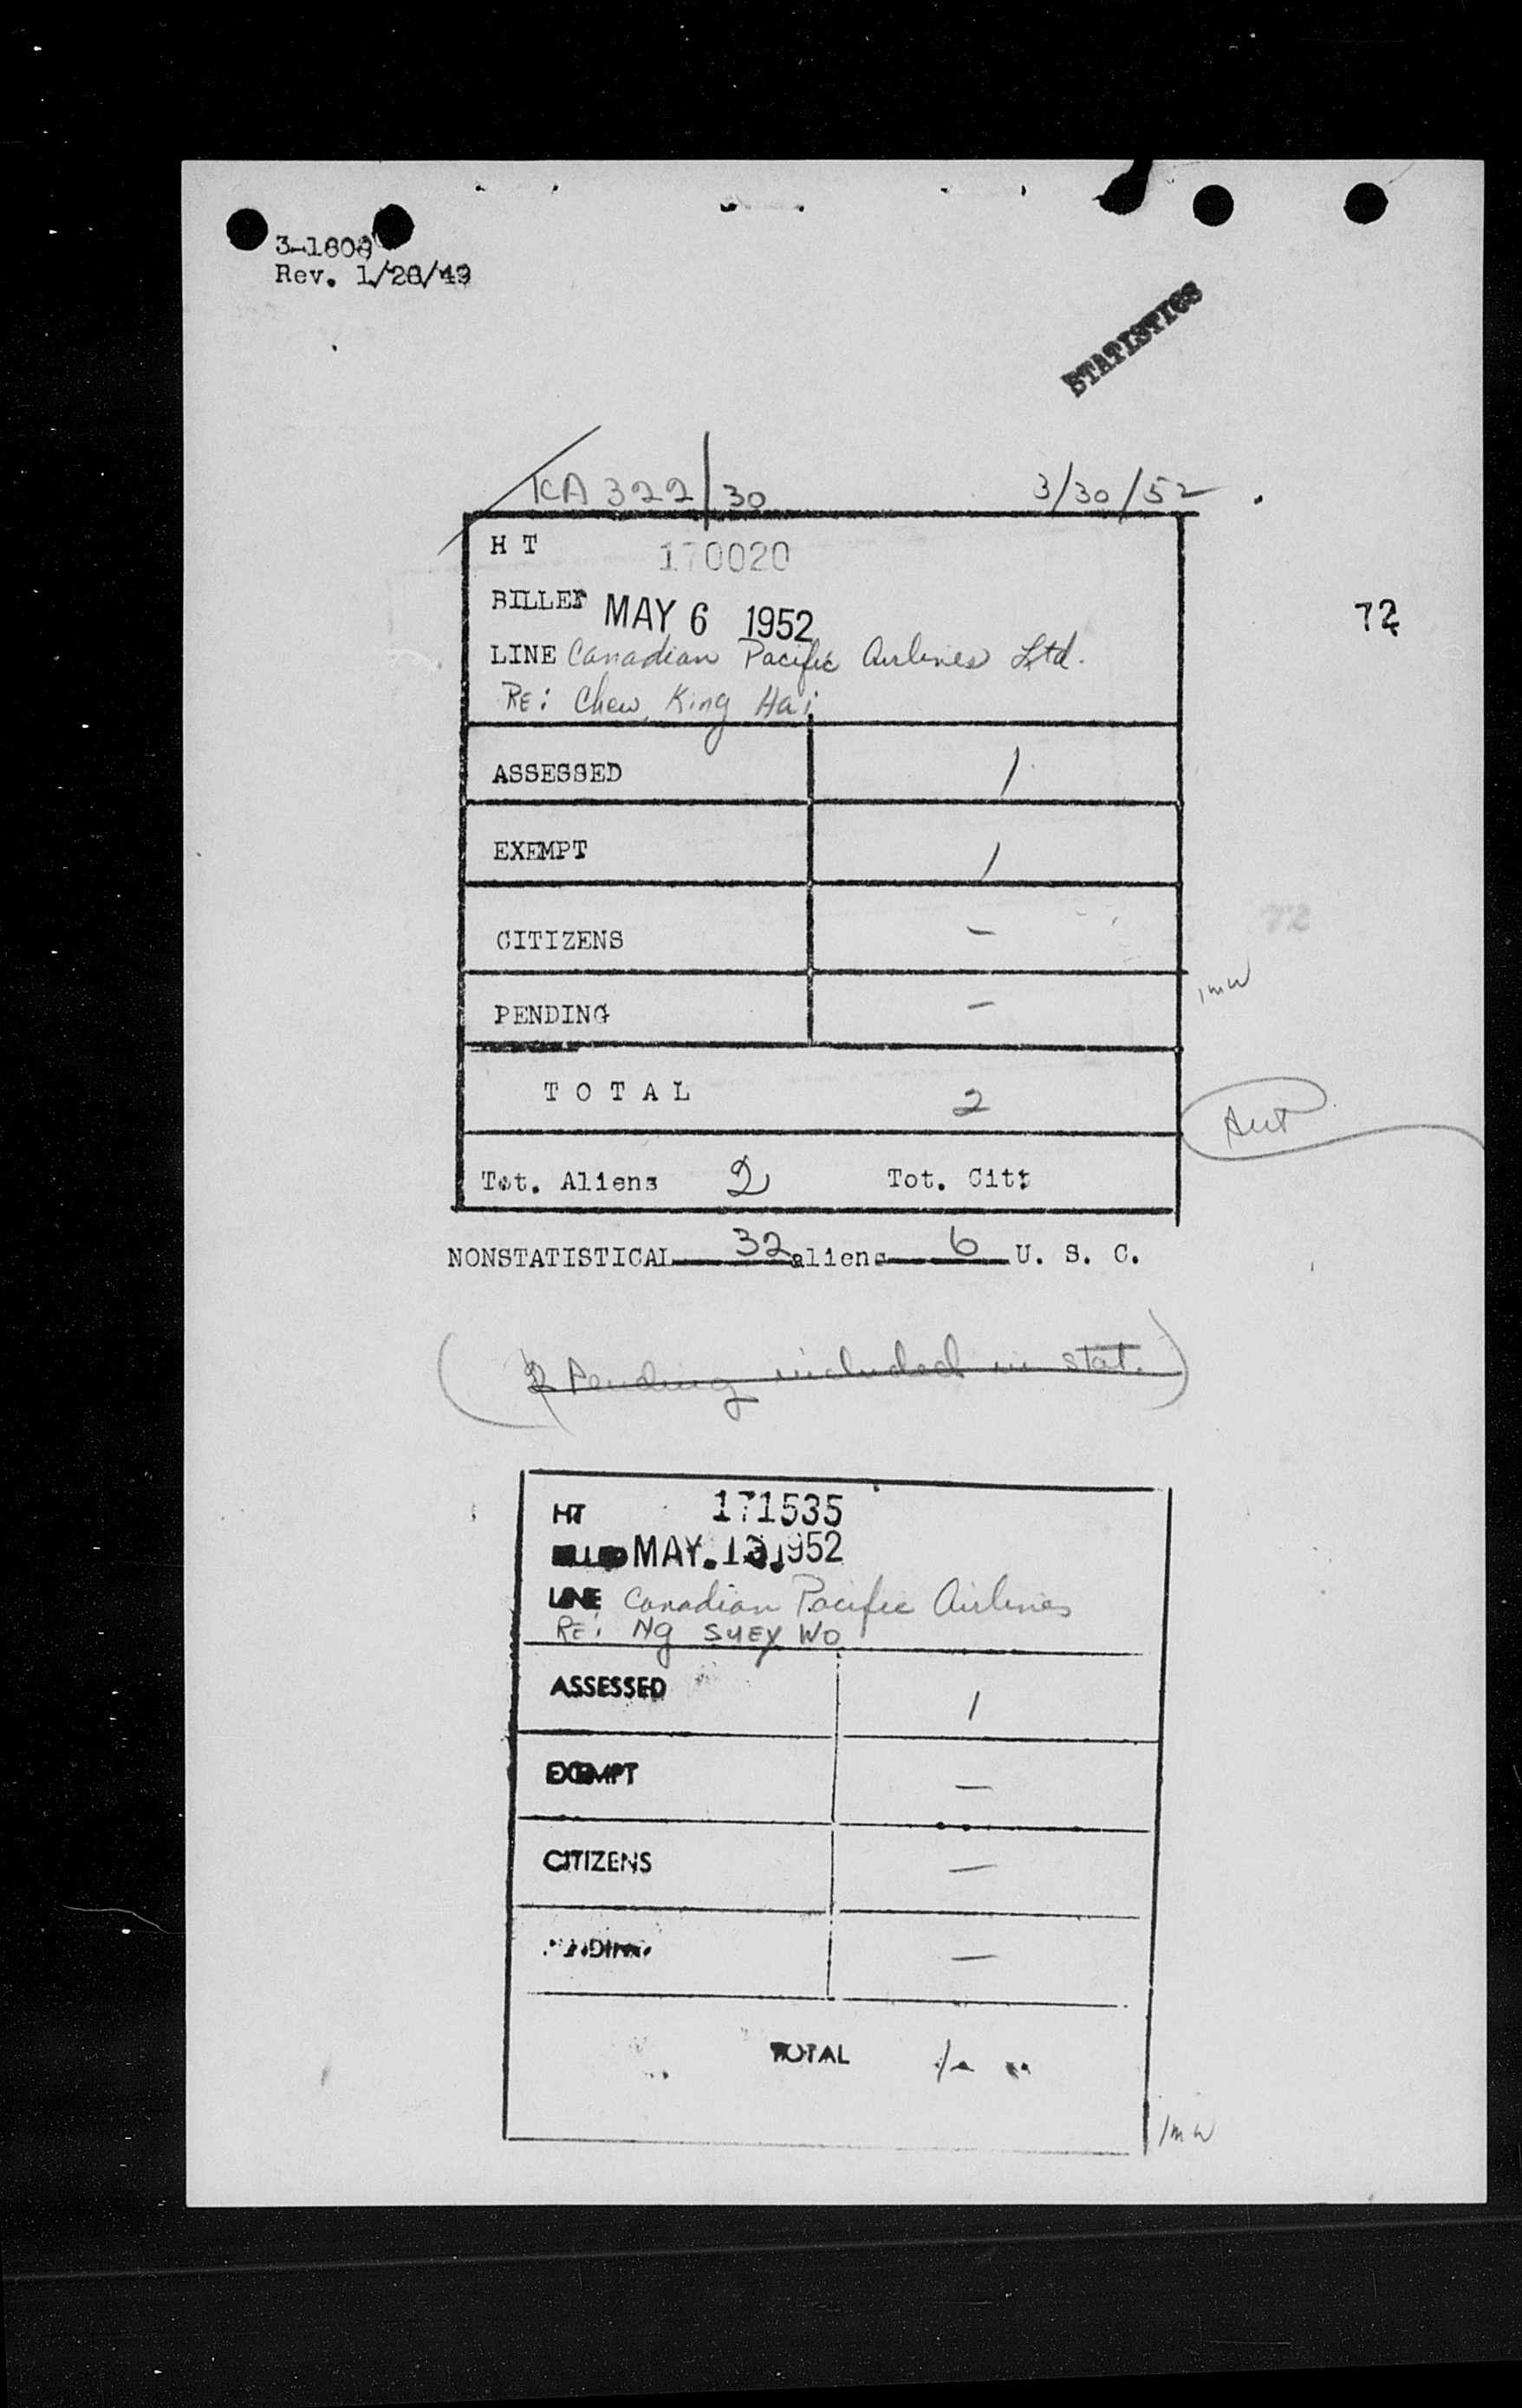 3-1608
Rev. 1/28/49
STATISTICS
KA 322/30 3/30/52
H T 170020
BILLED MAY 6 1952
72
LINE Canadian Pacific Airlines Ltd.
RE: Chew, King Hai
ASSESSED 1
EXEMPT 1
CITIZENS -
72
PENDING -
imw
T O T A L 2
Tot. Aliens 2 Tot. Cit:
NONSTATISTICAL 32 aliens 6 U. S. C.
(2 Pending included in stat.)
HT 171535
BILLED MAY 13 1952
LINE Canadian Pacific Airlines
RE: Ng Suey Wo
ASSESSED 1
EXEMPT -
CITIZENS -
PENDING -
TOTAL 1
imw